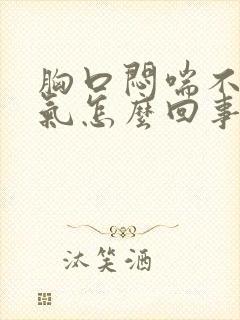 胸口悶喘不
氣怎麼回事
沐笑酒